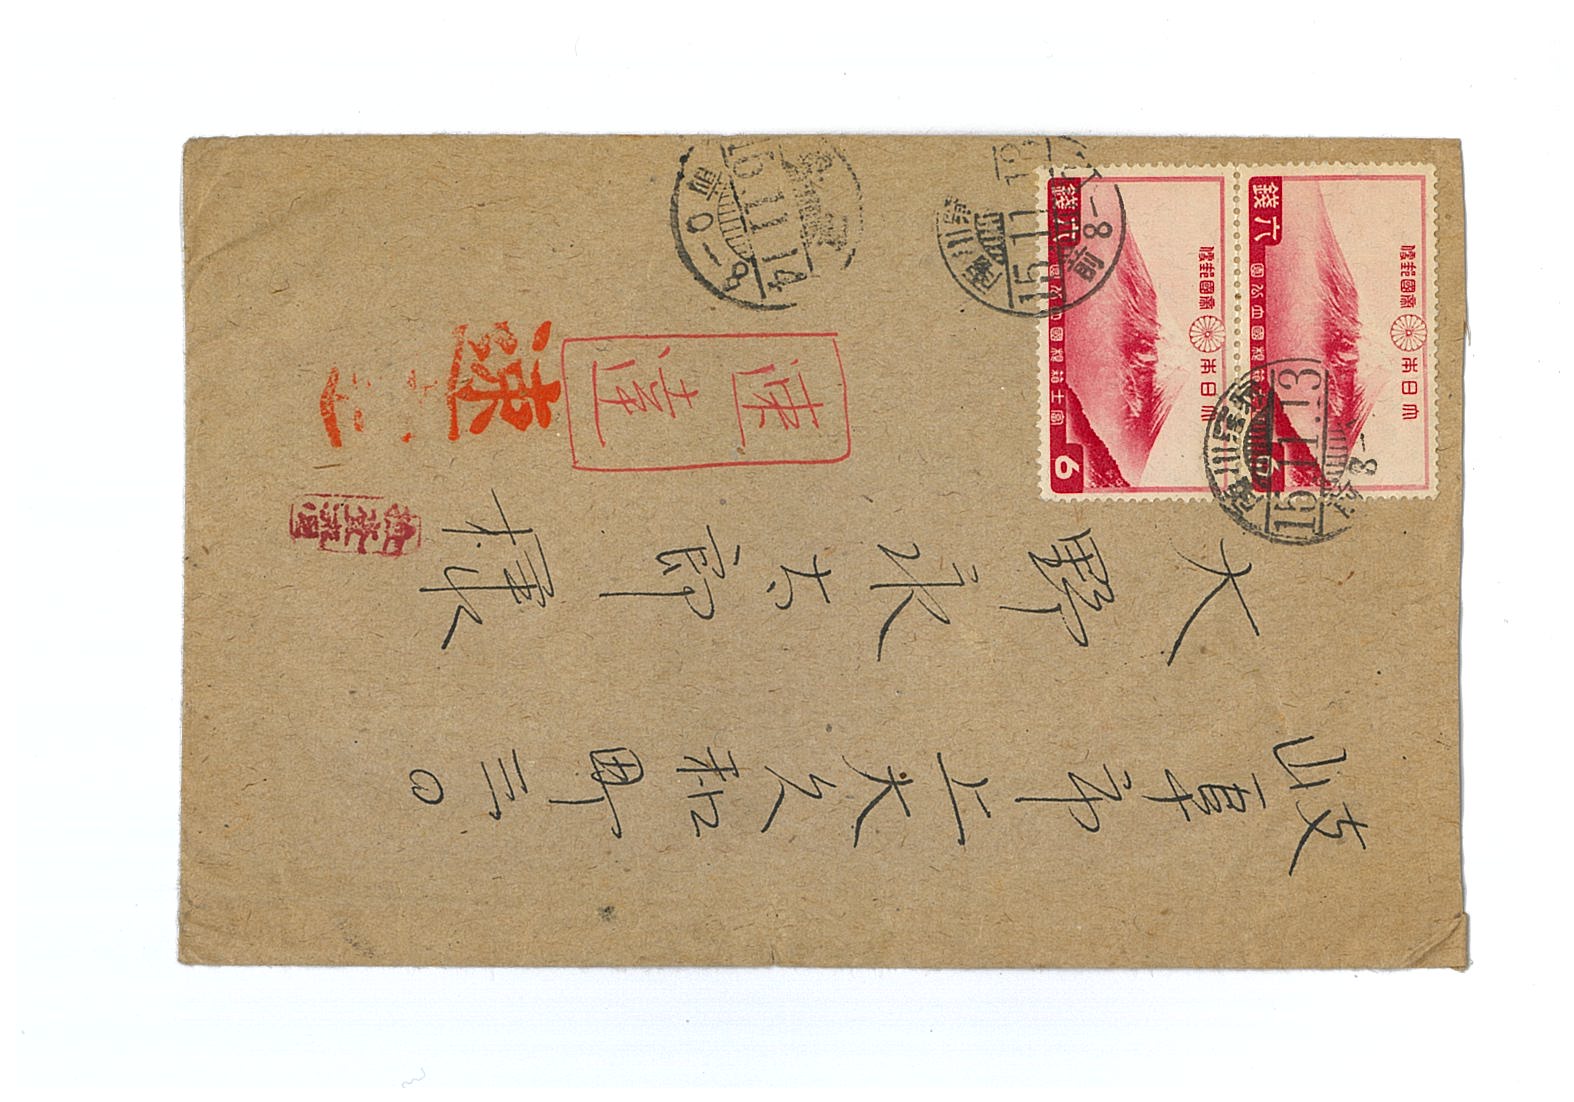 岐阜市上大久和町三〇
大野永太郎様
速達
速達
大日本帝國郵便
六錢
富士箱根國立公園
6
大日本帝國郵便
六錢
富士箱根國立公園
6
15.11.13
前
8-
15.11.13
8-
15.11.14
前0-8